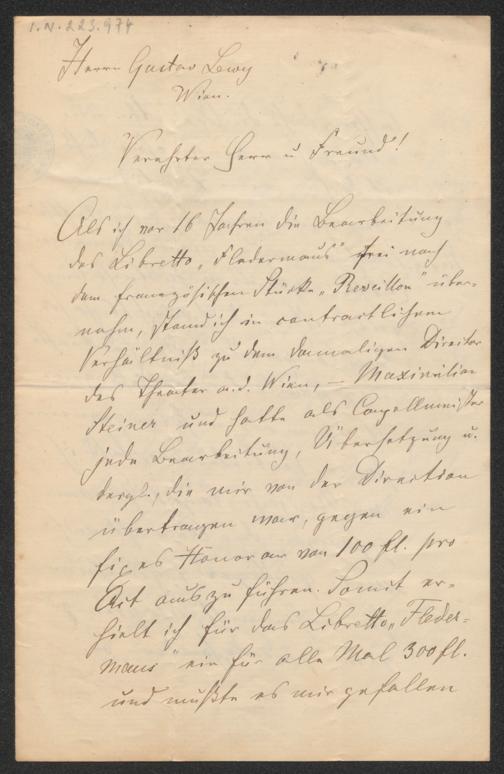 I.N. 223.974
Herrn Gustav Lewy
Wien.
Verehrter Herr u Freund!
Als ich vor 16 Jahren die Bearbeitung
des Libretto „Fledermaus" frei nach
dem französischen Stücke „Reveillon" über-
nahm, stand ich in contractlichem
Verhältniß zu dem damaligen Director
des Theater a. d. Wien, – Maximilian
Steiner und hatte als Capellmeister
jede Bearbeitung, Übersetzung u.
dergl., die mir von der Direction
übertragen war, gegen ein
fixes Honorar von 100 fl. pro
Act auszuführen. Somit er-
hielt ich für das Libretto „Fleder-
maus" ein für alle Mal 300 fl.
und mußte es mir gefallen